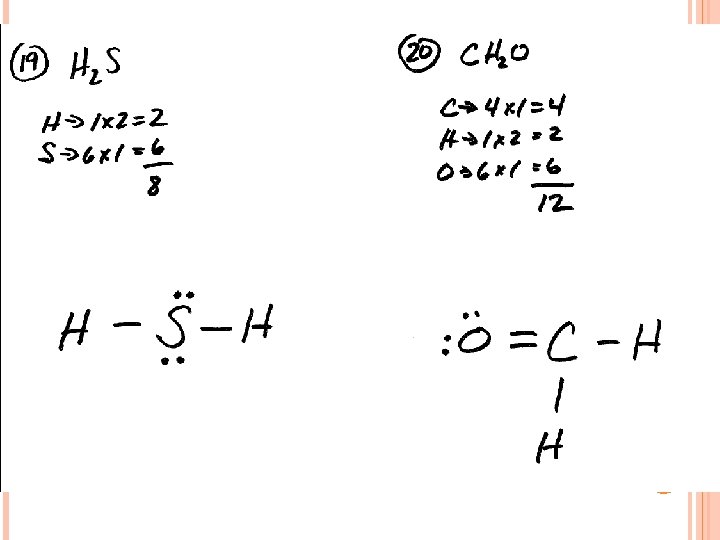 (19) H₂S
H→1x2=2
S→6x1=6
8
H-S-H
(20) CH₂O
C→4x1=4
H→1x2=2
O→6x1=6
12
:O=C-H
|
H